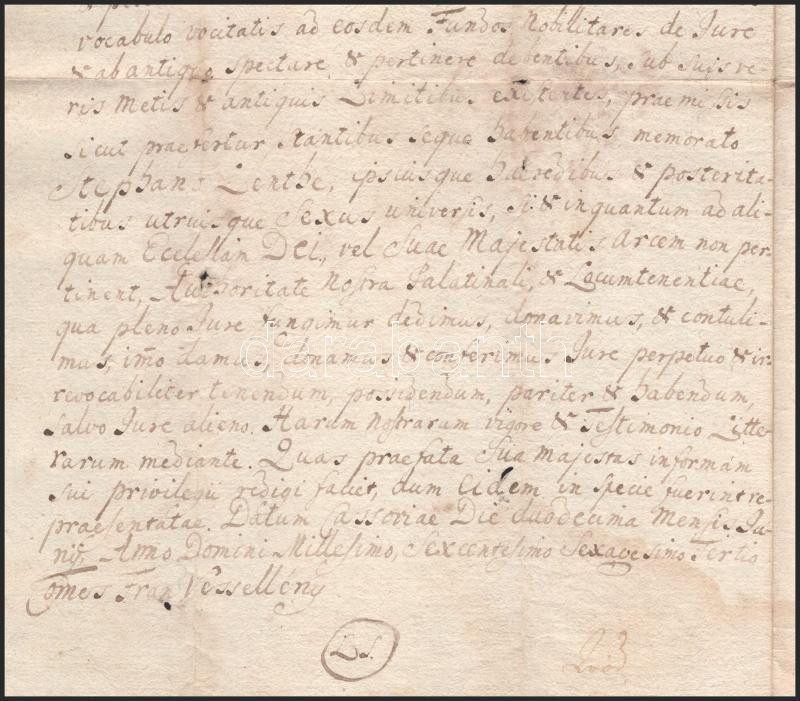 vocabulo vocitatis ad eosdem Fundos Nobilitares de Jure
& ab antiquo spectare & pertinere debentibus, sub suis ve-
ris Metis & antiquis Limitibus existentes, praemissis
sicut praefertur stantibus seque habentibus memorato
Stephano Lenthe, ipsiusque haeredibus & posterita-
tibus utriusque Sexus universis, si & in quantum ad ali-
quam Ecclesiam Dei, vel Suae Majestatis Arcem non per-
tinent, Authoritate Nostra Palatinali, & Locumtenentiae,
qua pleno Jure fungimur dedimus, donavimus, & contuli-
mus, imo damus, donamus & conferimus Jure perpetuo & ir-
revocabiliter tenendum, possidendum, pariter & habendum,
salvo Jure alieno. Harum Nostrarum vigore & Testimonio Litte-
rarum mediante. Quas praefata Sua Majestas in formam
sui privilegii redigi faciet, dum Eidem in specie fuerint re-
praesentatae. Datum Cassoviae Die duodecima Mensis Ju-
nij, Anno Domini Millesimo, Sexcentesimo Sexagesimo Tertio
Comes Fran Vesselleny
L.S.
darabanth